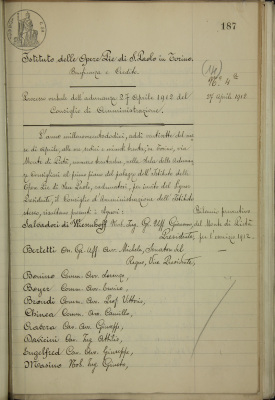 187
Istituto delle Opere Pie di S. Paolo in Torino.
Beneficenza e Credito.
N.° 4°
Processo verbale dell'adunanza 27 Aprile 1912 del
27 Aprile 1912
Consiglio di Amministrazione.
L'anno millenovecentododici, addì ventisette del me-
se di Aprile, alle ore sedici e minuti trenta, in Torino, via
Monte di Pietà, numero trentadue, nella Sala delle adunan-
ze Consigliari al primo piano del palazzo dell'Istituto delle
Opere Pie di San Paolo, radunatosi, per invito del Signor
Presidente, il Consiglio d'Amministrazione dell'Istituto
stesso, risultano presenti i Signori:
Bilancio preventivo
Salvadori di Wiesenhoff Nob. Ing. Gr. Uff. Giacomo,
del Monte di Pietà
Presidente,
per l'esercizio 1912.
Berletti On. Gr. Uff. Avv. Michele, Senatore del
Regno, Vice Presidente,
Bonino Comm. Avv. Lorenzo,
Boyer Comm. Avv. Enrico,
Brondi Comm. Avv. Prof. Vittorio,
Chinea Comm. Avv. Camillo,
Cav. Avv. Giuseppe,
Davicini Cav. Ing. Attilio,
Engelfred Cav. Avv. Giuseppe,
Masino Nob. Ing.